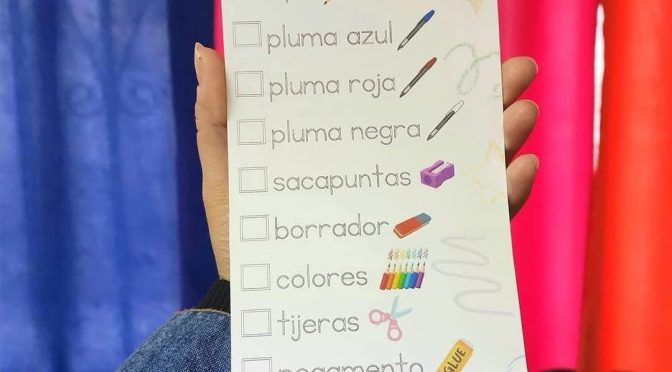 pluma azul
pluma roja
pluma negra
sacapuntas
borrador
colores
tijeras
pegamento
GLUE